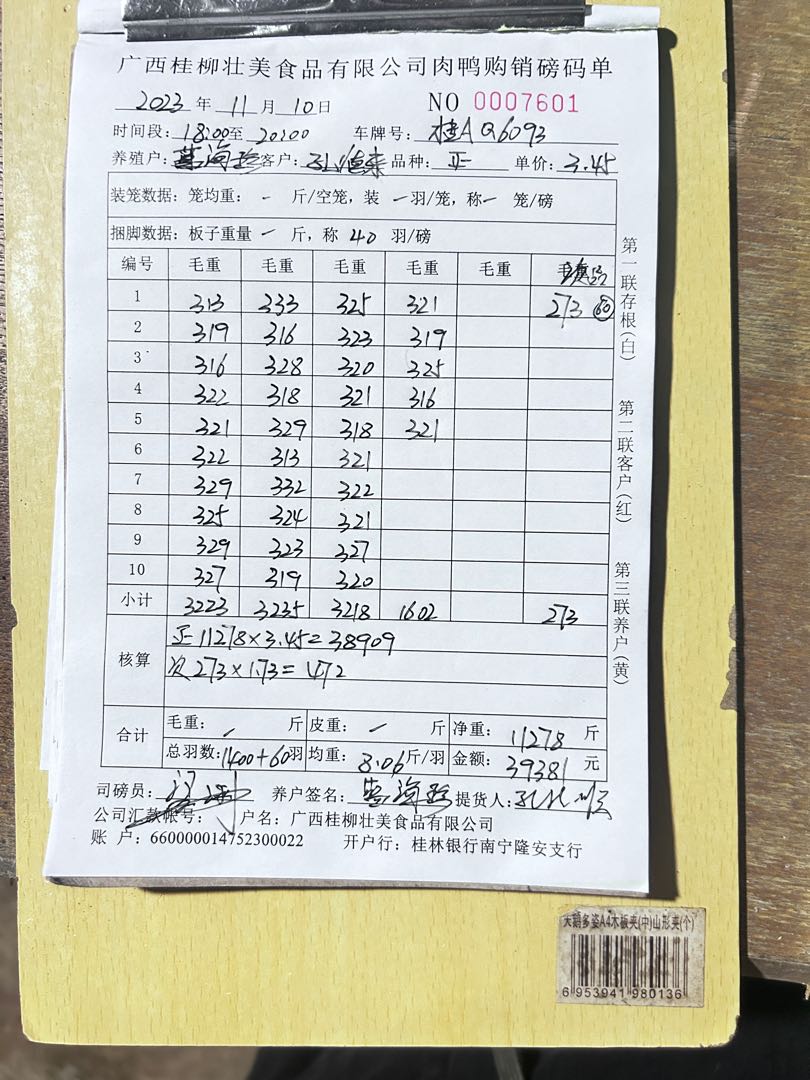 广西桂柳壮美食品有限公司肉鸭购销磅码单
2023 年 11 月 10 日 NO 0007601
时间段: 18:00 至 20:00 车牌号: 桂A Q6093
养殖户: 海珍 客户: 品种: 正 单价: 3.45
装笼数据: 笼均重: - 斤/空笼, 装 - 羽/笼, 称 - 笼/磅
捆脚数据: 板子重量 - 斤, 称 40 羽/磅
编号 毛重 毛重 毛重 毛重 毛重
1 313 333 325 321 273 60
2 319 316 323 319
3 316 328 320 325
4 322 318 321 316
5 321 329 318 321
6 322 313 321
7 329 332 322
8 325 324 321
9 329 323 327
10 327 319 320
小计 3223 3235 3218 1602 273
核算 正 11278×3.45=38909
次 273×1.73=472
合计 毛重: - 斤 皮重: - 斤 净重: 11278 斤
总羽数: 1400+60 羽 均重: 8.06 斤/羽 金额: 39381 元
司磅员: 养户签名: 海珍 提货人:
公司汇款帐号: 户名: 广西桂柳壮美食品有限公司
账 户: 660000014752300022 开户行: 桂林银行南宁隆安支行
第一联存根(白)
第二联客户(红)
第三联养户(黄)
天鹅多姿A4木板夹(中)山形夹(个)
6 953941 980136